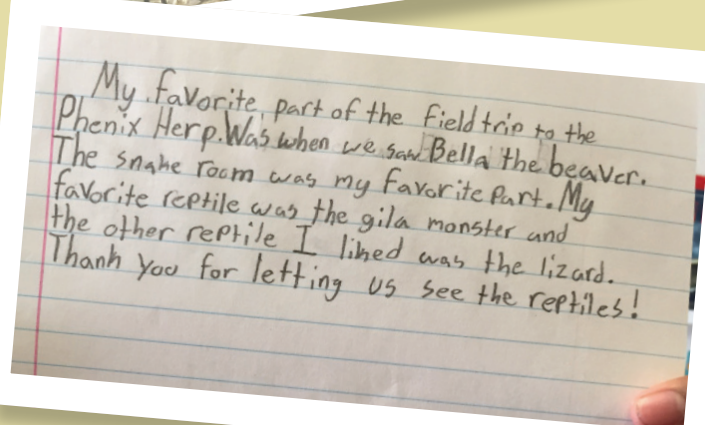 My favorite part of the field trip to the
Phenix Herp. Was when we saw Bella the beaver.
The snake room was my favorite part. My
favorite reptile was the gila monster and
the other reptile I liked was the lizard.
Thank you for letting us see the reptiles!